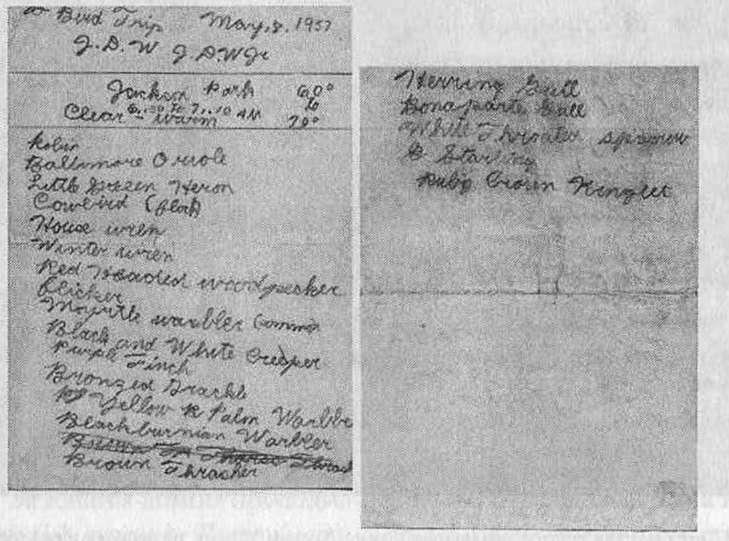 Bird Trip May, 8, 1937
J. D. W J D W Jr
Jackson Park 60°
6:30 to 7:10 AM to
Clear warm 70°
Robin
Baltimore Oriole
Little Green Heron
Cowbird (flock)
House wren
Winter wren
Red Headed woodpecker
flicker
Myrtle warbler Common
Black and White Creeper
Purple Finch
Bronzed Grackle
Yellow R Palm Warbler
Blackburnian Warbler
Brown Thrasher
Herring Gull
Bonaparte Gull
White Throated sparrow
Starling
Ruby Crown Kinglet